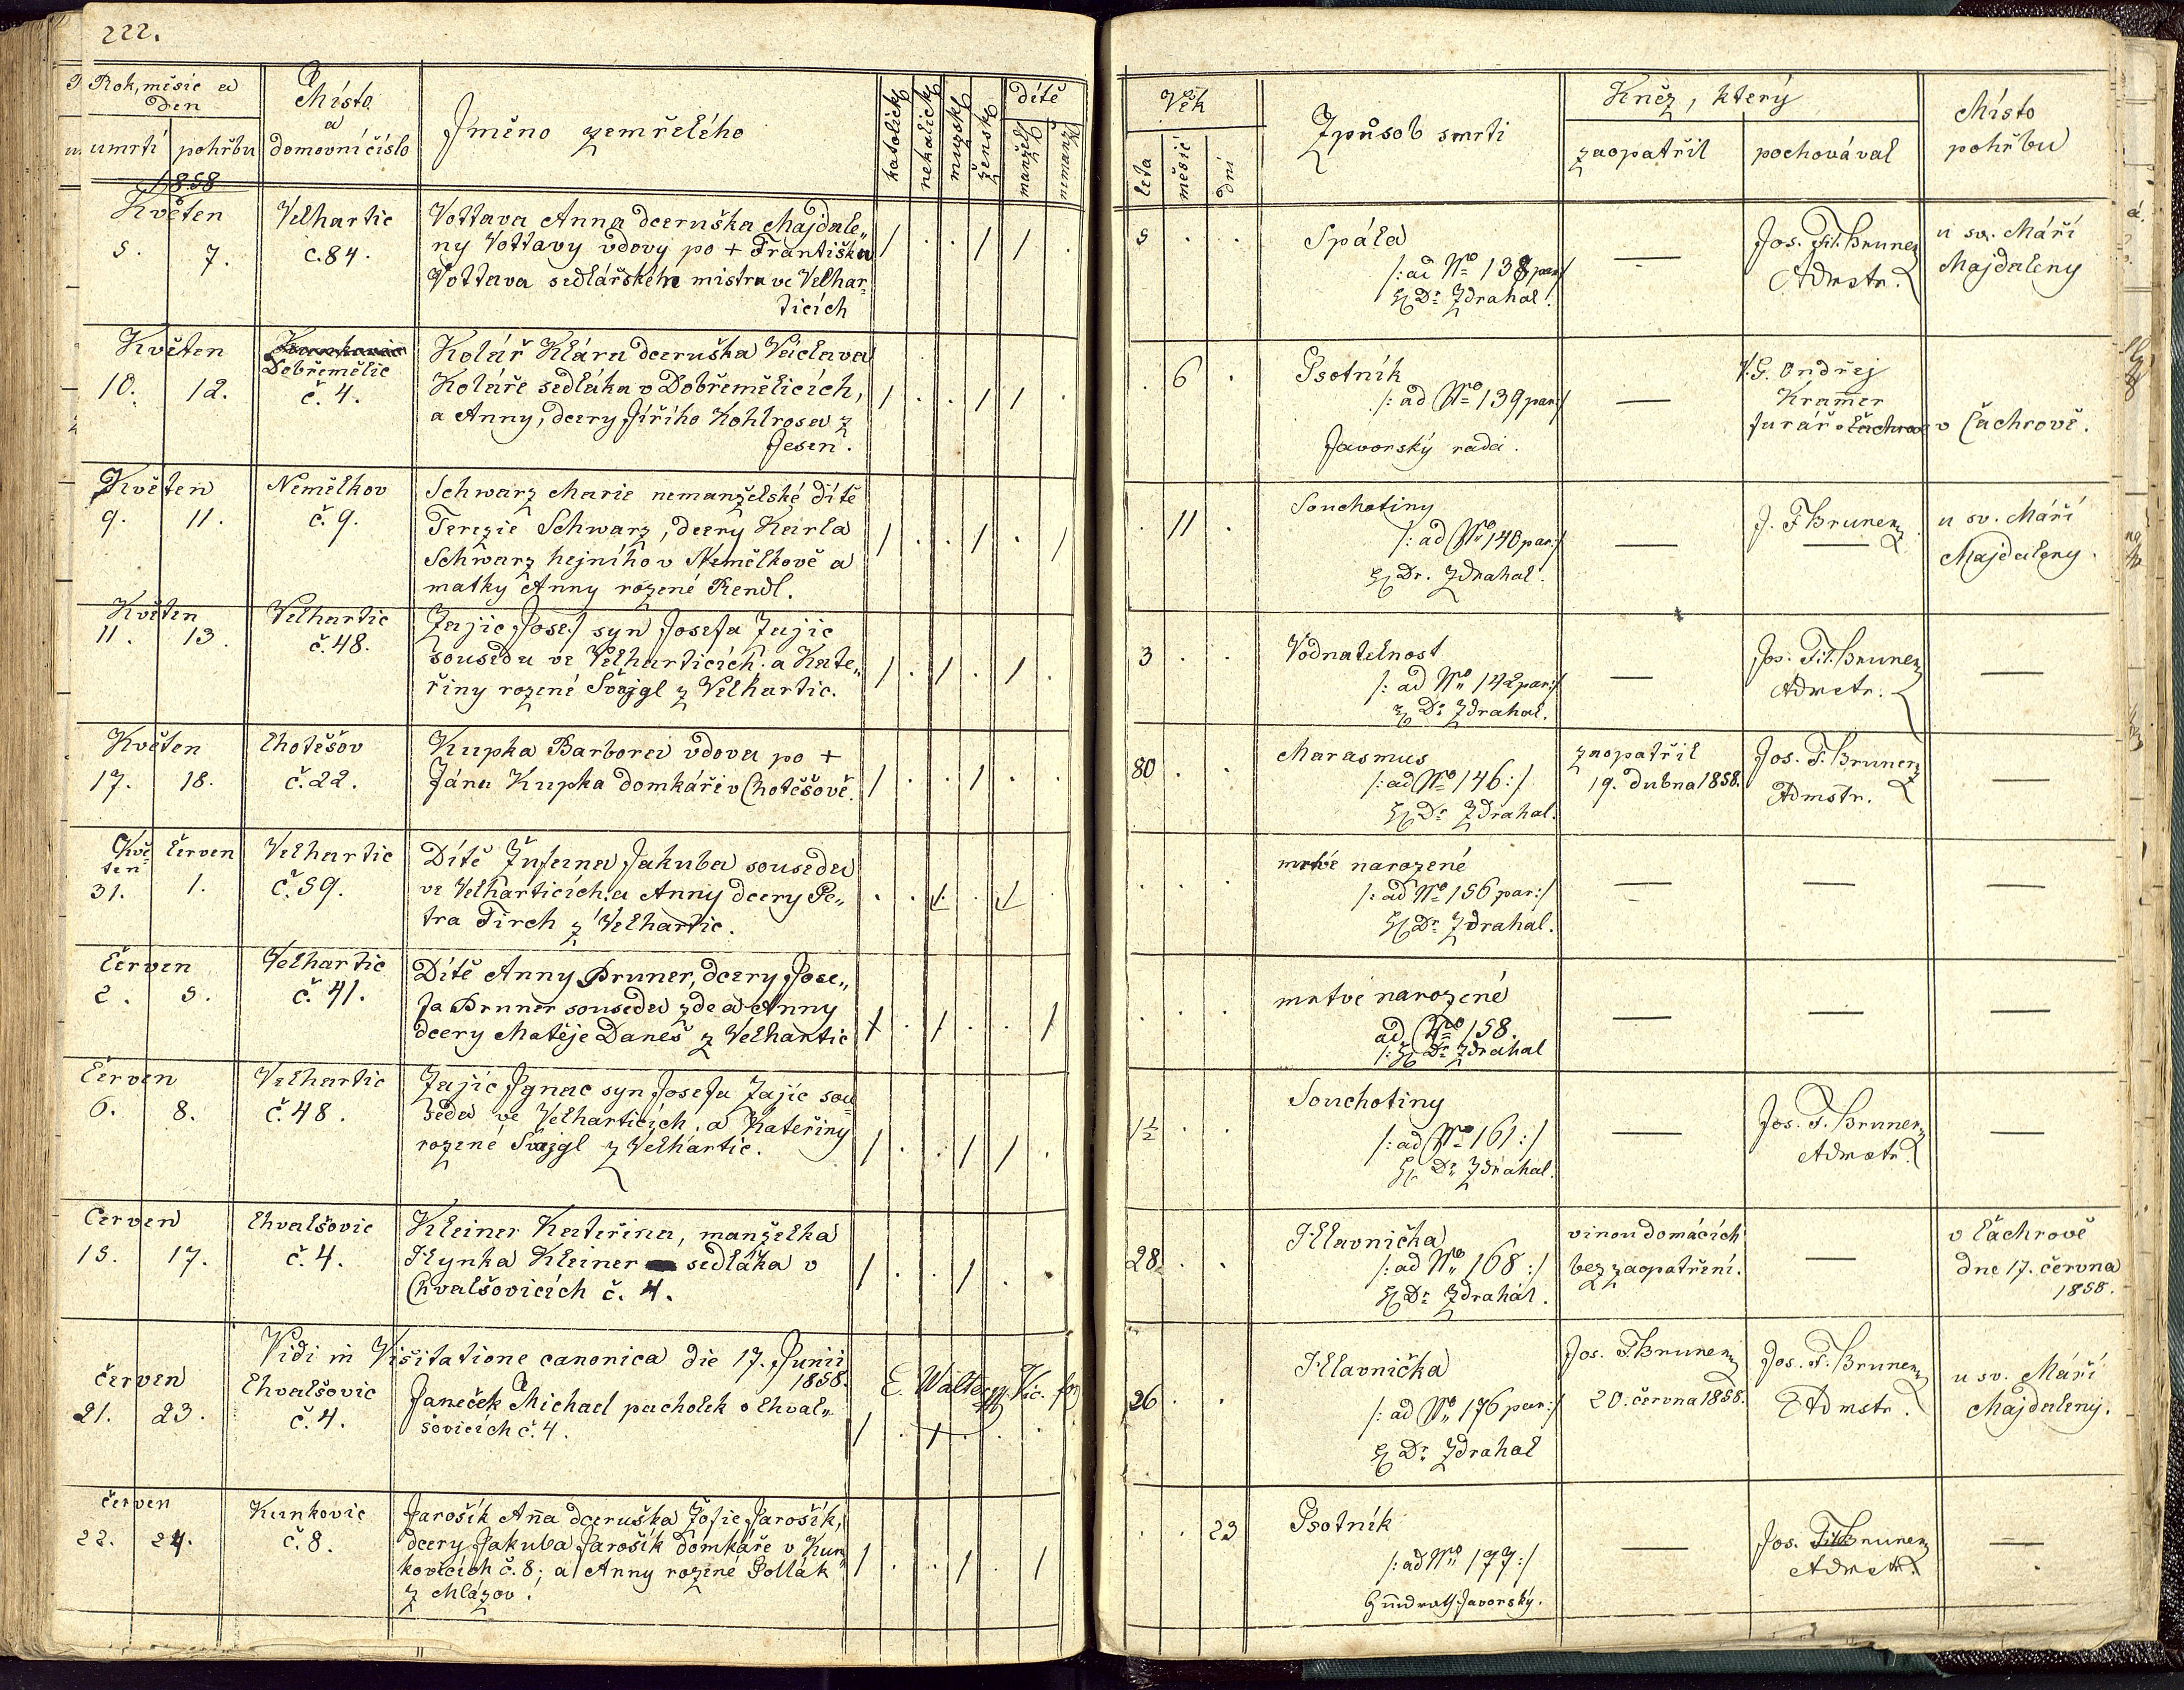 222.
Rok, měsíc a
den
umrtí
pohřbu
Místo
a
domovní číslo
Jméno zemřelého
katolický
nekatolický
mužský
ženský
dítě
manžel.
nemanž.
1858
Květen
5. 7.
Velhartic
č. 84.
Vottava Anna dceruška Majdale„
ny Vottavy vdovy po + Františku
Vottava sedlářského mistra ve Velhar„
ticích
/ . . / / .
Květen
10. 12.
Dobřemělic
č. 4.
Kolář Klára dceruška Václava
Koláře sedláka v Dobřemělicích,
a Anny, dcery Jiřího Kohlrosa z
Jesen.
/ . . / / .
Květen
9. 11.
Nemělkov
č. 9.
Schwarz Marie nemanželské dítě
Terezie Schwarz, dcery Karla
Schwarz hejného v Nemělkově a
matky Anny rozené Rendl.
/ . . / . /
Květen
11. 13.
Velhartic
č. 48.
Zajíc Josef syn Josefa Zajíc
souseda ve Velharticích a Kate„
řiny rozené Švajgl z Velhartic.
/ . / . / .
Květen
17. 18.
Chotěšov
č. 22.
Kupka Barbora vdova po +
Jánu Kupka domkáři v Chotěšově.
/ . . / . .
Kvě-
ten
31.
červen
1.
Velhartic
č. 59.
Dítě Žufana Jakuba souseda
ve Velharticích a Anny dcery Pe„
tra Tirch z Velhartic.
. . / . / .
Červen
2. 5.
Velhartic
č. 41.
Dítě Anny Bruner, dcery Jose„
fa Bruner souseda zde a Anny
dcery Matěje Daneš z Velhartic
/ . / . . /
Červen
6. 8.
Velhartic
č. 48.
Zajíc Ignac syn Josefa Zajíc sou-
seda ve Velharticích, a Kateřiny
rozené Švajgl z Velhartic.
/ . . / / .
Červen
15. 17.
Chvalšovic
č. 4.
Kleiner Kateřina, manželka
Hynka Kleiner sedláka v
Chvalšovicích č. 4.
/ . . / . .
Vidi in Visitatione canonica die 17. Junii
1858.
E. Walter Vic. for
červen
21. 23.
Chvalšovic
č. 4.
Janeček Michael pacholek v Chval„
šovicích č. 4.
/ . / . . .
červen
22. 24.
Kunkovic
č. 8.
Jarošík Anna dceruška Žofie Jarošík,
dcery Jakuba Jarošík domkáře v Kun„
kovicích č. 8; a Anny rozené Pollák
z Mlázov.
/ . . / . /
Věk
léta
měsíc
dní
Způsob smrti
Kněz, který
zaopatřil
pochovával
Místo
pohřbu
5 . .
Spála
/: ad No 138 par:/
Dr Zdrahal.
—
Jos. Fil. Bruner
Admstr.
u sv. Máří
Majdaleny
. 6 .
Psotník
/: ad No 139 par:/
Javorský rada.
—
V.G. Ondřej
Kramer
farář v Čachrově
v Čachrově.
. 11 .
Souchotiny
/: ad No 140 par:/
Dr. Zdrahal.
—
J. F. Bruner
—
u sv. Máří
Majdaleny.
3 . .
Vodnatelnost
/: ad No 142 par:/
Dr Zdrahal.
—
Jos. Fil. Bruner
Admstr.
—
80 . .
Marasmus
/: ad No 146 :/
Dr Zdrahal.
zaopatřil
19. dubna 1858.
Jos. F. Bruner
Admstr.
—
. . .
mrtvé narozené
/: ad No 156 par:/
Dr Zdrahal.
— — —
. . .
mrtvé narozené
ad No 158.
/: Dr Zdrahal
— — —
1½ . .
Souchotiny
/: ad No 161 :/
Dr Zdrahal.
—
Jos. F. Bruner
Admstr.
—
28 . .
Hlavnička
/: ad No 168 :/
Dr Zdrahal.
vinou domácích
bez zaopatření.
—
v Čachrově
dne 17. června
1858.
26 . .
Hlavnička
/: ad No 176 par:/
Dr Zdrahal
Jos. F. Bruner
20. června 1858.
Jos. F. Bruner
Admstr.
u sv. Máří
Majdaleny.
. . 23
Psotník
/: ad No 177 :/
Javorský.
—
Jos. Fil. Bruner
Admstr.
—